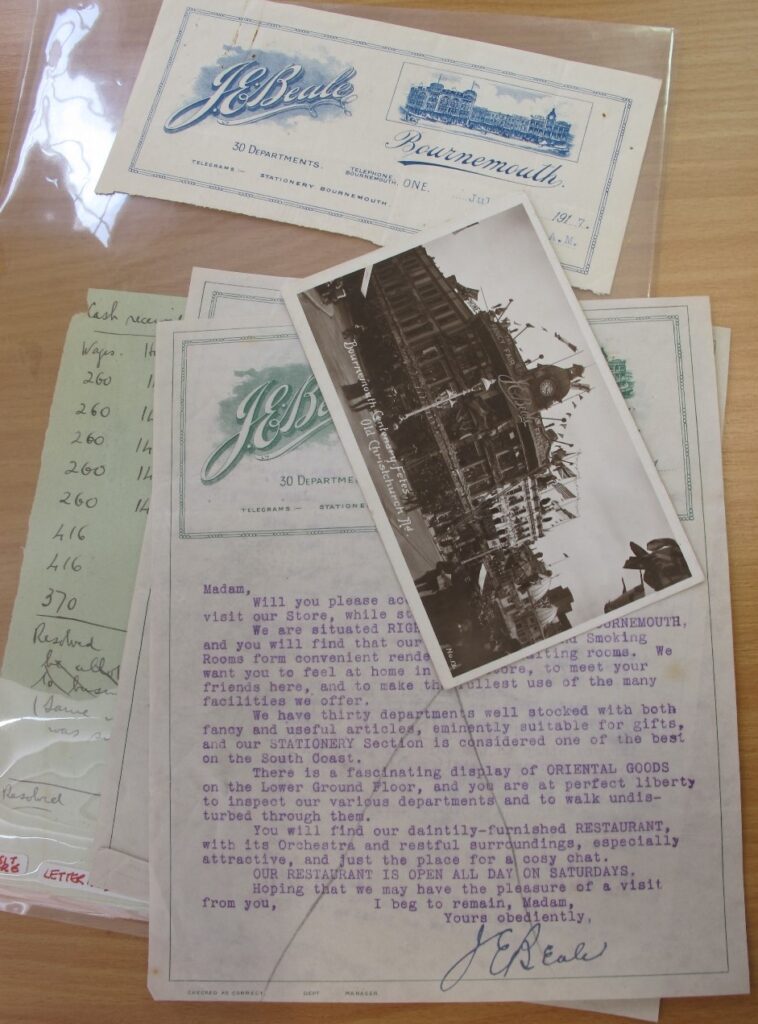 J.E. Beale
30 DEPARTMENTS.
TELEGRAMS — STATIONERY BOURNEMOUTH
TELEPHONE, BOURNEMOUTH, ONE.
Bournemouth.
Jul
191 7.
A.M.
Cash
Wages.
260
260
260
260
260
416
416
370
Resolved
(Same
was
Resolved
LETTER
J.E. Bea
30 DEPARTME
TELEGRAMS — STATIONE
Bournemouth Centenary Fetes,
Old Christchurch Rd
Madam,
Will you please ac
visit our Store, while st
We are situated RIG OURNEMOUTH,
and you will find that our nd Smoking
Rooms form convenient rende iting rooms. We
want you to feel at home in ore, to meet your
friends here, and to make th ullest use of the many
facilities we offer.
We have thirty departments well stocked with both
fancy and useful articles, eminently suitable for gifts,
and our STATIONERY Section is considered one of the best
on the South Coast.
There is a fascinating display of ORIENTAL GOODS
on the Lower Ground Floor, and you are at perfect liberty
to inspect our various departments and to walk undis-
turbed through them.
You will find our daintily-furnished RESTAURANT,
with its Orchestra and restful surroundings, especially
attractive, and just the place for a cosy chat.
OUR RESTAURANT IS OPEN ALL DAY ON SATURDAYS.
Hoping that we may have the pleasure of a visit
from you, I beg to remain, Madam,
Yours obediently,
J E Beale
CHECKED AS CORRECT, DEPT MANAGER